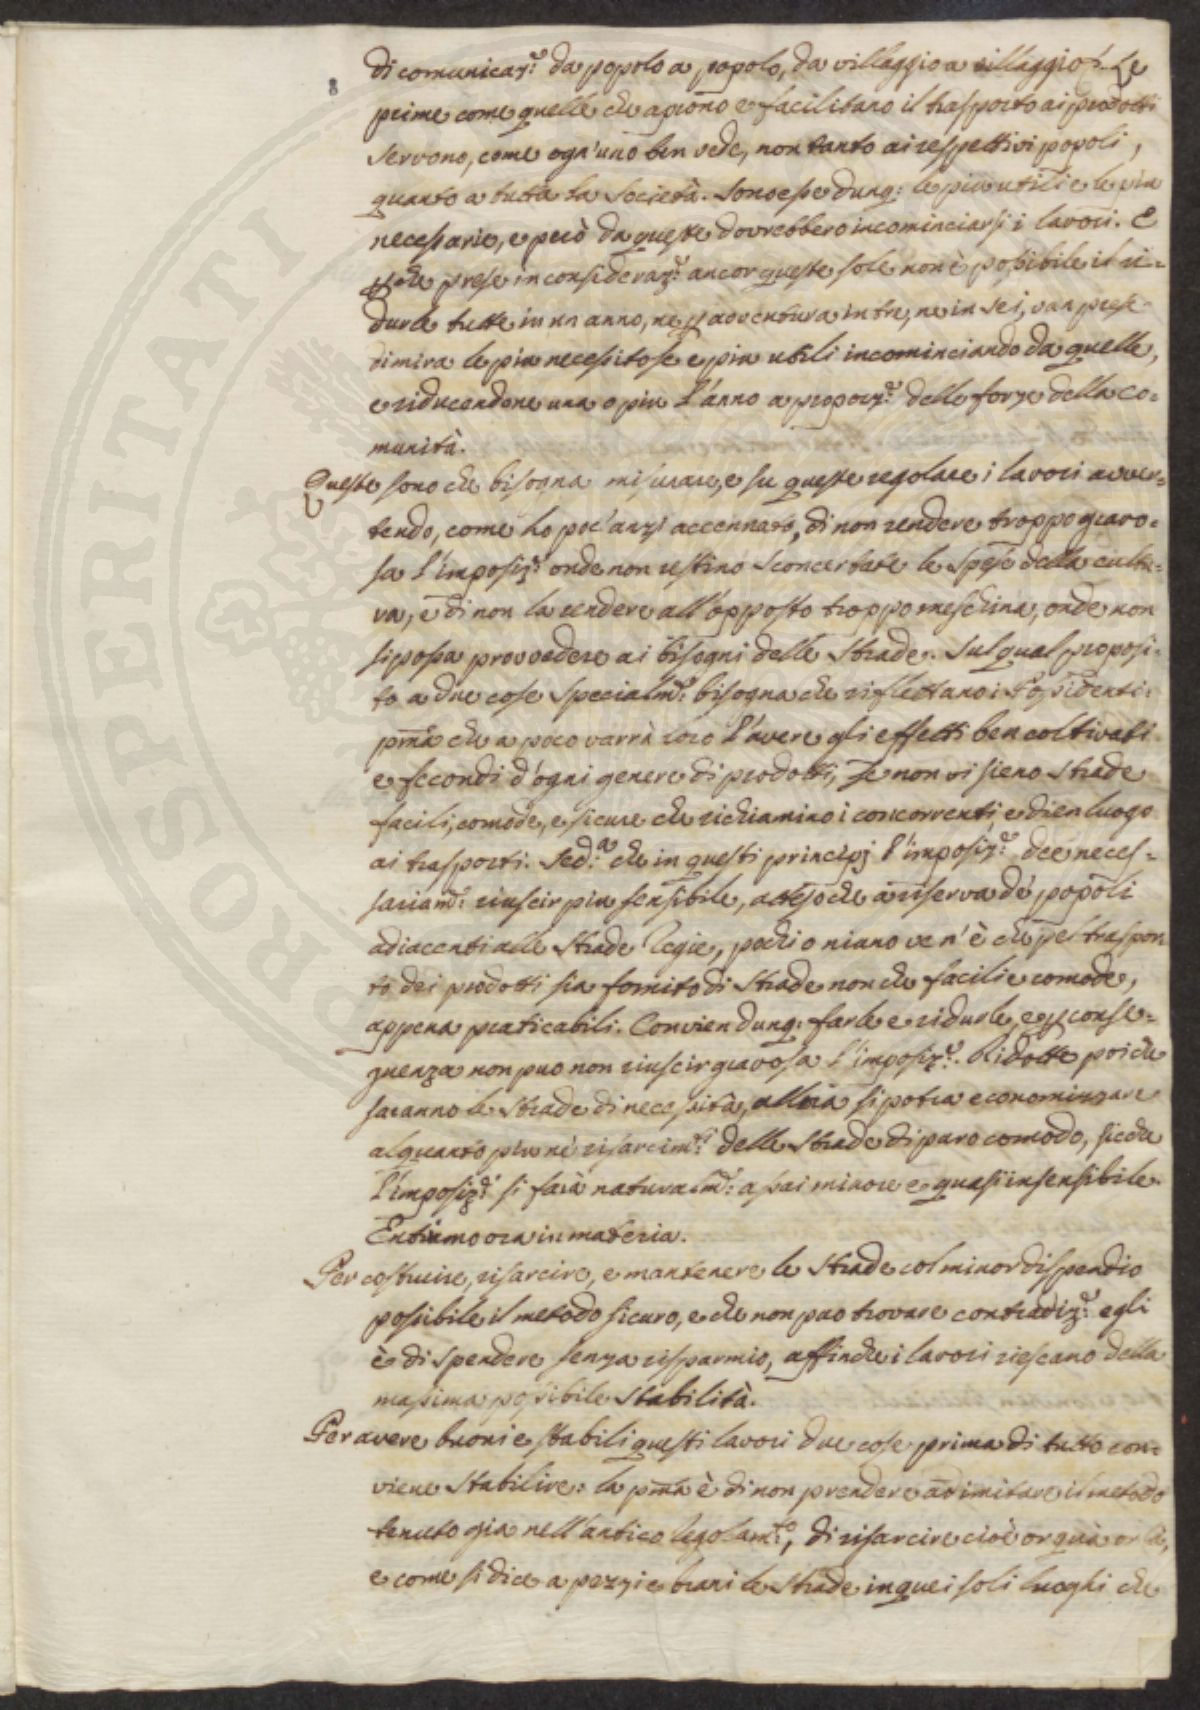 di comunicaz.e da popolo a popolo, da villaggio a villaggio. Le
prime come quelle che aprono e facilitano il trasporto ai prodotti
servono, come ogn'uno ben vede, non tanto ai respettivi popoli,
quanto a tutta la Società. Sono esse dunq: le piu utili e le piu
necessarie, e però da queste dovrebbero incominciarsi i lavori. E
p che prese in consideraz.e ancor queste sole non è possibile il ri-
durle tutte in un anno, ne p avventura in tre, ne in sei, van prese
di mira le piu necessitose e piu utili incominciando da quelle,
e riducendone una o piu l'anno a proporz.e delle forze della Co-
munità.
Queste sono che bisogna misurare, e su queste regolare i lavori avver-
tendo, come ho poc'anzi accennato, di non rendere troppo gravo-
sa l'imposiz.e onde non restino sconcertate le spese della cultu-
va, e di non la rendere all'opposto troppo meschina, onde non
si possa provvedere ai bisogni delle Strade. Sul qual proposi-
to a due cose specialm.e bisogna che riflettano i Possidenti:
pma che a poco varrà loro l'avere gli effetti ben coltivati
e fecondi d'ogni genere di prodotti, se non vi sieno strade
facili, comode, e sicure che richiamino i concorrenti, e dien luogo
ai trasporti. Sed.a che in questi principj l'imposiz.e dee neces-
sariam.e riuscir piu sensibile, attesoche a riserva de' popoli
adiacenti alle Strade Regie, pochi o niuno ve n'è che pel traspor
to dei prodotti sia fornito di Strade non che facili e comode,
appena praticabili. Convien dunq: farle e ridurle, e p conse-
guenza non puo non riuscir gravosa l'imposiz.e. Ridotte poi che
saranno le Strade di necessità, allora si potra economizzare
alquanto piu nei risarcim.ti delle Strade di puro comodo, sicche
l'imposiz.e si farà naturalm.e assai minore e quasi insensibile.
Entriamo ora in materia.
Per costruire, risarcire, e mantenere le Strade col minor dispendio
possibile il metodo sicuro, e che non puo trovare contradiz.e egli
è di spendere senza risparmio, affinche i lavori riescano della
massima possibile stabilità.
Per avere buoni e stabili questi lavori due cose prima di tutto con-
viene stabilire: la pma è di non prendere ad imitare il metodo
tenuto gia nell'antico Regolam.to, di risarcire cioè or quà or là,
e come si dice a pezzi e brani le Strade in quei soli luoghi che